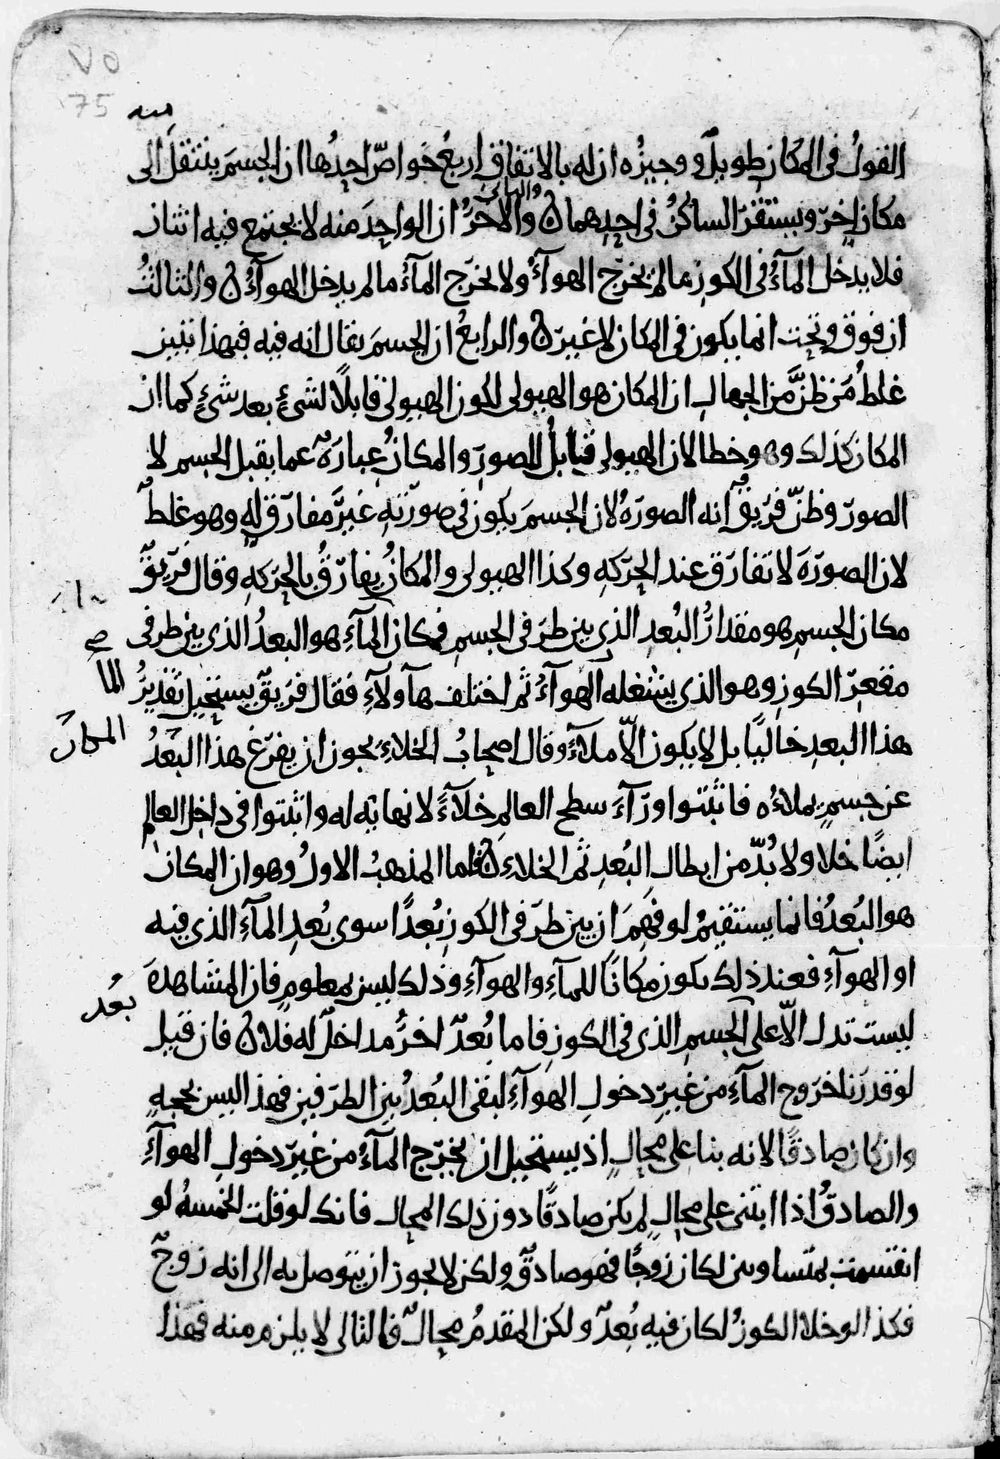 ٧٥
75
منه
القولُ في المكان طويلٌ ووجيزُه ان له بالاتفاق اربعُ خواصّ احدُها ان الجسمَ ينتقل الى
مكانٍ اخرَ ويستقرّ الساكنُ في احدهما ن والاخرُ والثاني ان الواحِدَ منه لا يجتمع فيه اثنان
فلا يدخل المآءُ في الكوز ما لم يخرج الهوآءُ ولا يخرج المآءُ ما لم يدخل الهوآءُ ن والثالثُ
ان فوق وتحت انما يكون في المكان لا غير ن والرابعُ ان الجسمَ يقال انه فيه فبهذا تبين
غلطُ مَن ظنَّ من الجهال ان المكان هو الهيولى لكون الهيولى قابلًا لشئٍ بعد شئٍ كما ان
المكان كذلك وهو خطا لان الهيولى قابلُ للصورِ والمكانُ عبارَةٌ عما يقبل الجسم لا
الصور وظنّ فريقٌ انه الصورَةُ لان الجسمَ يكون في صورته غيرَ مفارقٍ له وهو غلطٌ
لان الصورةَ لا تفارق عند الحركهِ وكذا الهيولى والمكانُ يفارقُ بالحركهِ وقال فريقٌ
مكان الجسمِ هو مقدارُ البُعدِ الذي بين طرفي الجسم فمكان المآءِ هو البعدُ الذي بين طرفي
مقعرِ الكوزِ وهو الذي يشغله الهوآءُ ثم اختلف هآولآءِ فقال فريقٌ يستحيل تقديرُ
المكان
هذا البعدِ خاليًا بل لا يكون الّا ملآءً وقال اصحابُ الخلاءِ يجوز ان يفرغ هذا البُعدُ
عن جسمٍ يملاءُه فاثبتوا ورآءَ سطح العالمِ خلآءً لا نهايةَ له واثبتوا في داخل العالم
ايضًا خلا ولا بُدّ من ابطال البُعدِ ثم الخلاءِ ن فاما المذهبُ الاولُ وهو ان المكان
هو البُعدُ فانما يستقيمُ لو فُهِمَ ان بين طرفي الكوز بُعدًا سوى بُعدِ المآءِ الذي فيه
او الهوآءِ فعند ذلك يكون مكانًا للمآءِ والهوآءِ وذلك ليس بمعلومٍ فان المشاهدةَ
بُعد
ليست تدل الّا على الجسمِ الذي في الكوز فاما بُعدٌ اخرُ مداخلٌ له فلا ن فان قيل
لو قدرنا خروج المآءِ من غيرِ دخولِ الهوآءِ لبقى البُعدُ بين الطرفين فهذا ليس بحجهٍ
وان كان صادقًا لانه بنا على محالٍ اذ يستحيل ان يخرج المآءُ من غيرِ دخولِ الهوآءِ
والصادقُ اذا ابتنى على محالٍ لم يكن صادقًا دون ذلك المحال فانك لو قلت الخمسهُ لو
انقسمت بمتساويين لكان زوجًا فهو صادقٌ ولكن لا يجوز ان يتوصل به الى انه زوجٌ
فكذا لو خلا الكوزُ لكان فيه بُعدٌ ولكن المقدمُ محالٌ فالتالى لا يلزم منه فهذا